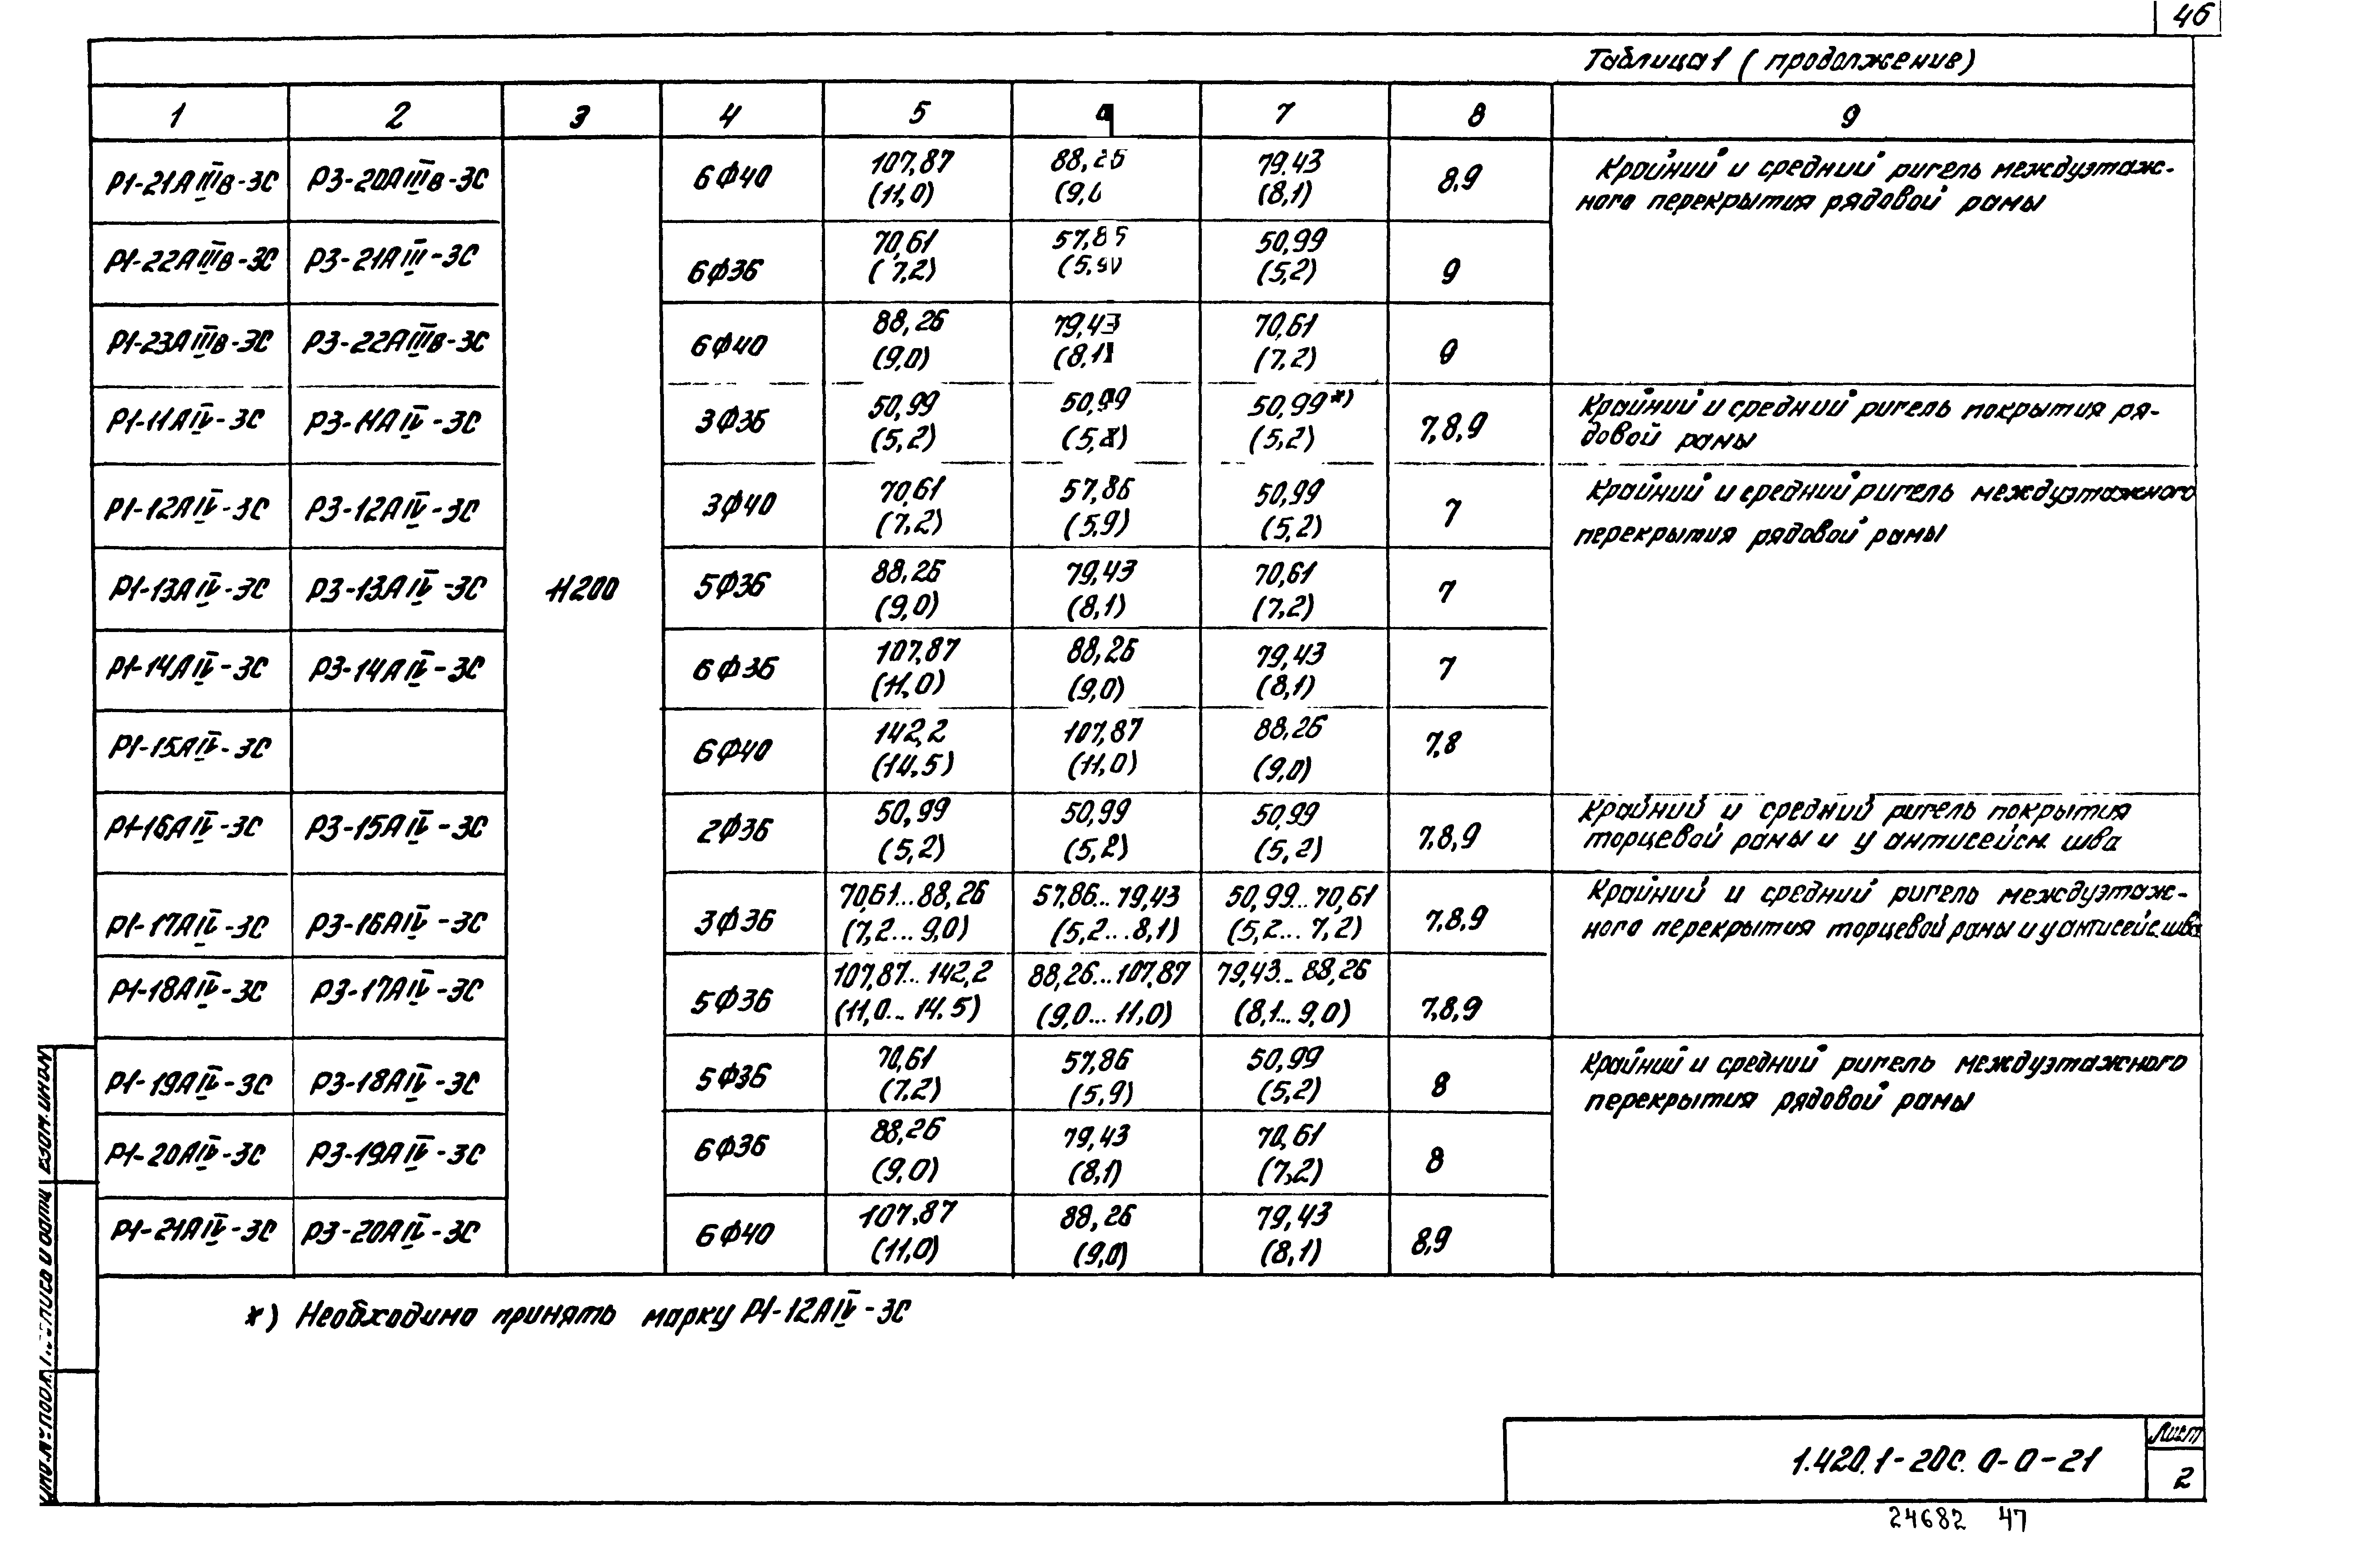 46
Таблица 1 (продолжение)
1 2 3 4 5 7 8 9
Р1-21АIIIв-3С Р3-20АIIIв-3С 6Ф40 107,87 88,26 79,43 8,9 Крайний и средний ригель междуэтаж-
(11,0) (9,0 (8,1) ного перекрытия рядовой рамы
Р1-22АIIIв-3С Р3-21АIII-3С 6Ф36 70,61 57,86 50,99 9
(7,2) (5,9) (5,2)
Р1-23АIIIв-3С Р3-22АIIIв-3С 6Ф40 88,26 79,43 70,61 9
(9,0) (8,1) (7,2)
Р1-11АIV-3С Р3-11АIV-3С 3Ф36 50,99 50,99 50,99*) 7,8,9 Крайний и средний ригель покрытия ря-
(5,2) (5,2) (5,2) довой рамы
Р1-12АIV-3С Р3-12АIV-3С 3Ф40 70,61 57,86 50,99 7 Крайний и средний ригель междуэтажного
(7,2) (5,9) (5,2) перекрытия рядовой рамы
Р1-13АIV-3С Р3-13АIV-3С Н200 5Ф36 88,26 79,43 70,61 7
(9,0) (8,1) (7,2)
Р1-14АIV-3С Р3-14АIV-3С 6Ф36 107,87 88,26 79,43 7
(11,0) (9,0) (8,1)
Р1-15АIV-3С 6Ф40 142,2 107,87 88,26 7,8
(14,5) (11,0) (9,0)
Р1-16АIV-3С Р3-15АIV-3С 2Ф36 50,99 50,99 50,99 7,8,9 Крайний и средний ригель покрытия
(5,2) (5,2) (5,2) торцевой рамы и у антисейсм. шва
Р1-17АIV-3С Р3-16АIV-3С 3Ф36 70,61...88,26 57,86...79,43 50,99...70,61 7,8,9 Крайний и средний ригель междуэтаж-
(7,2...9,0) (5,2...8,1) (5,2...7,2) ного перекрытия торцевой рамы и у антисейс. шва
Р1-18АIV-3С Р3-17АIV-3С 5Ф36 107,87...142,2 88,26...107,87 79,43...88,26 7,8,9
(11,0...14,5) (9,0...11,0) (8,1...9,0)
Р1-19АIV-3С Р3-18АIV-3С 5Ф36 70,61 57,86 50,99 8 Крайний и средний ригель междуэтажного
(7,2) (5,9) (5,2) перекрытия рядовой рамы
Р1-20АIV-3С Р3-19АIV-3С 6Ф36 88,26 79,43 70,61 8
(9,0) (8,1) (7,2)
Р1-21АIV-3С Р3-20АIV-3С 6Ф40 107,87 88,26 79,43 8,9
(11,0) (9,0) (8,1)
*) Необходимо принять марку Р1-12АIV-3С
Инв.№ подл. Подпись и дата Взам. инв.№
1.420.1-20С.0-0-21
Лист
2
24682 47